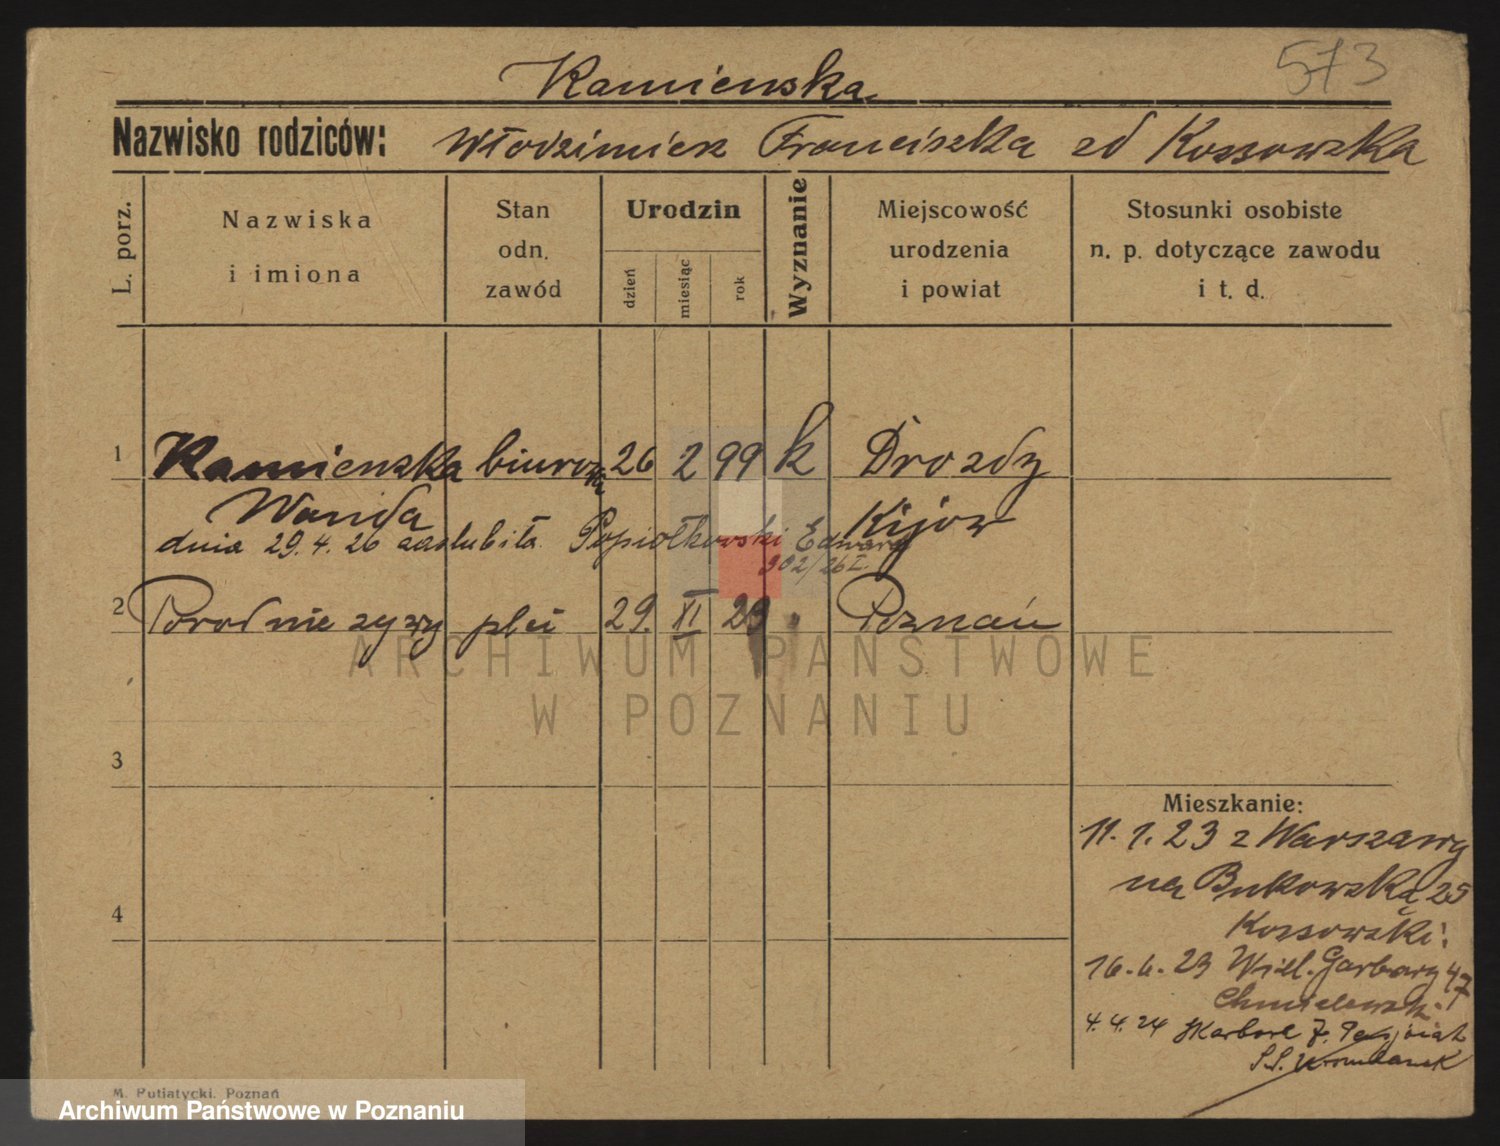 573
Kamienska
Nazwisko rodziców: Włodzimierz Franciszka zd Kossowska
L. porz.
Nazwiska
i imiona
Stan
odn.
zawód
Urodzin
dzień
miesiąc
rok
Wyznanie
Miejscowość
urodzenia
i powiat
Stosunki osobiste
n. p. dotyczące zawodu
i t. d.
1 Kamienska biurozka 26 2 99 k Drozdy
Wanda Kijow
dnia 29. 4. 26 zaslubiła Popiołkowski Edward
902/26 I.
2 Porod nie zywy płci 29. XI 23 Poznań
ARCHIWUM PAŃSTWOWE
W POZNANIU
3
4
Mieszkanie:
11. 1. 23 z Warszawy
na Bukowska 25
Kossowski
16. 6. 23 Wiel. Garbary 47
Chmielewski
4. 4. 24 Skarbowa
M. Putiatycki. Poznań
Archiwum Państwowe w Poznaniu